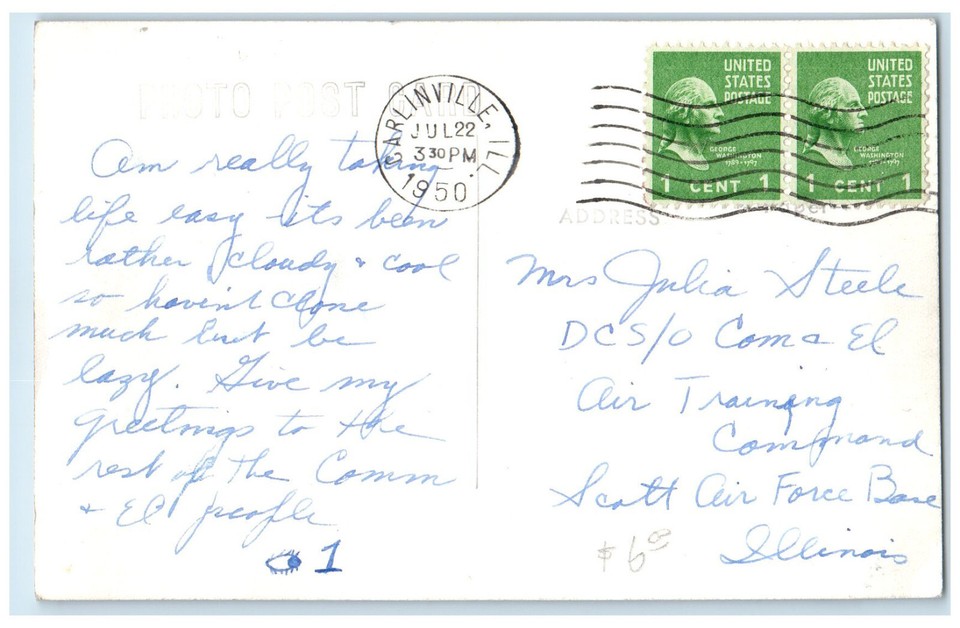 PHOTO POST CARD
CARLINVILLE, ILL.
JUL 22
3 30 PM
1950
UNITED
STATES
POSTAGE
GEORGE
WASHINGTON
1789-1797
1 CENT 1
UNITED
STATES
POSTAGE
GEORGE
WASHINGTON
1789-1797
1 CENT 1
ADDRESS
Am really taking
life easy its been
rather cloudy & cool
so havin't done
much but be
lazy. Give my
greetings to the
rest of the Comm
& El people
1
Mrs Julia Steele
DCS/O Com & El
Air Training
Command
Scott Air Force Base
Illinois
$6.00